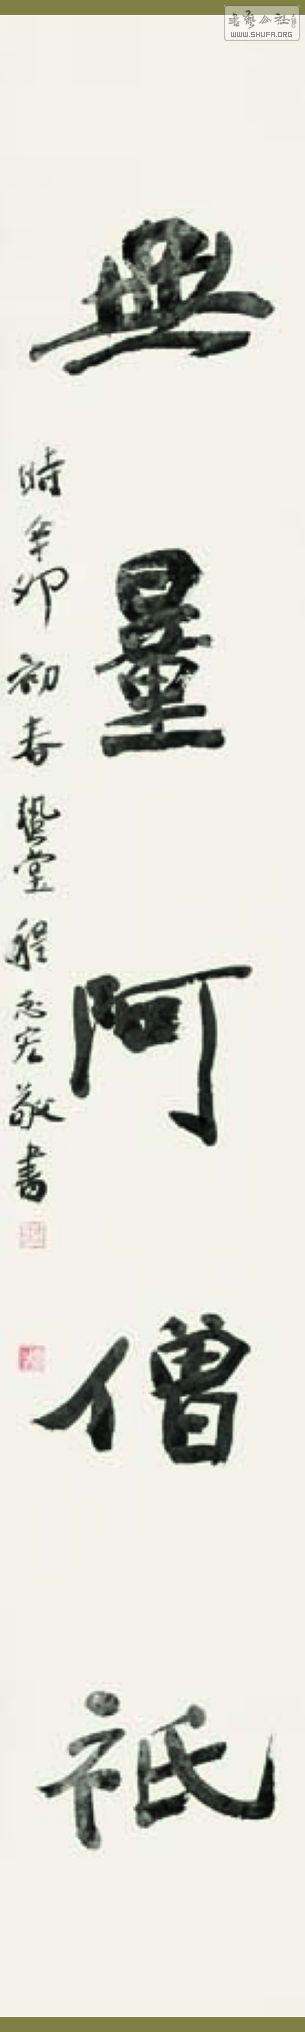 無量阿僧祇
時辛卯初春蟄堂程志宏敬書
書藝公社
WWW.SHUFA.ORG